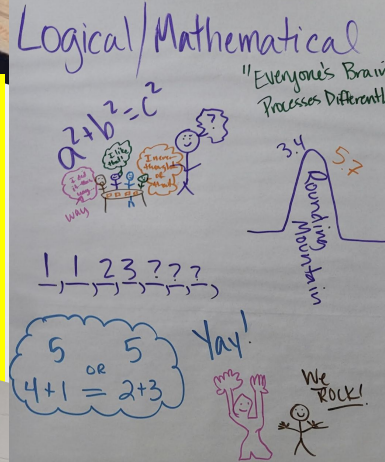 Logical/Mathematical
"Everyone's Brain
Processes Different
a²+b²=c²
? ?
I like
that!
I never
thought
of
that!
way
3.4
5.7
Rounding
Mountain
1, 1, 2, 3, ?, ?, ?,
Yay!
5 OR 5
4+1 = 2+3
We
ROCK!